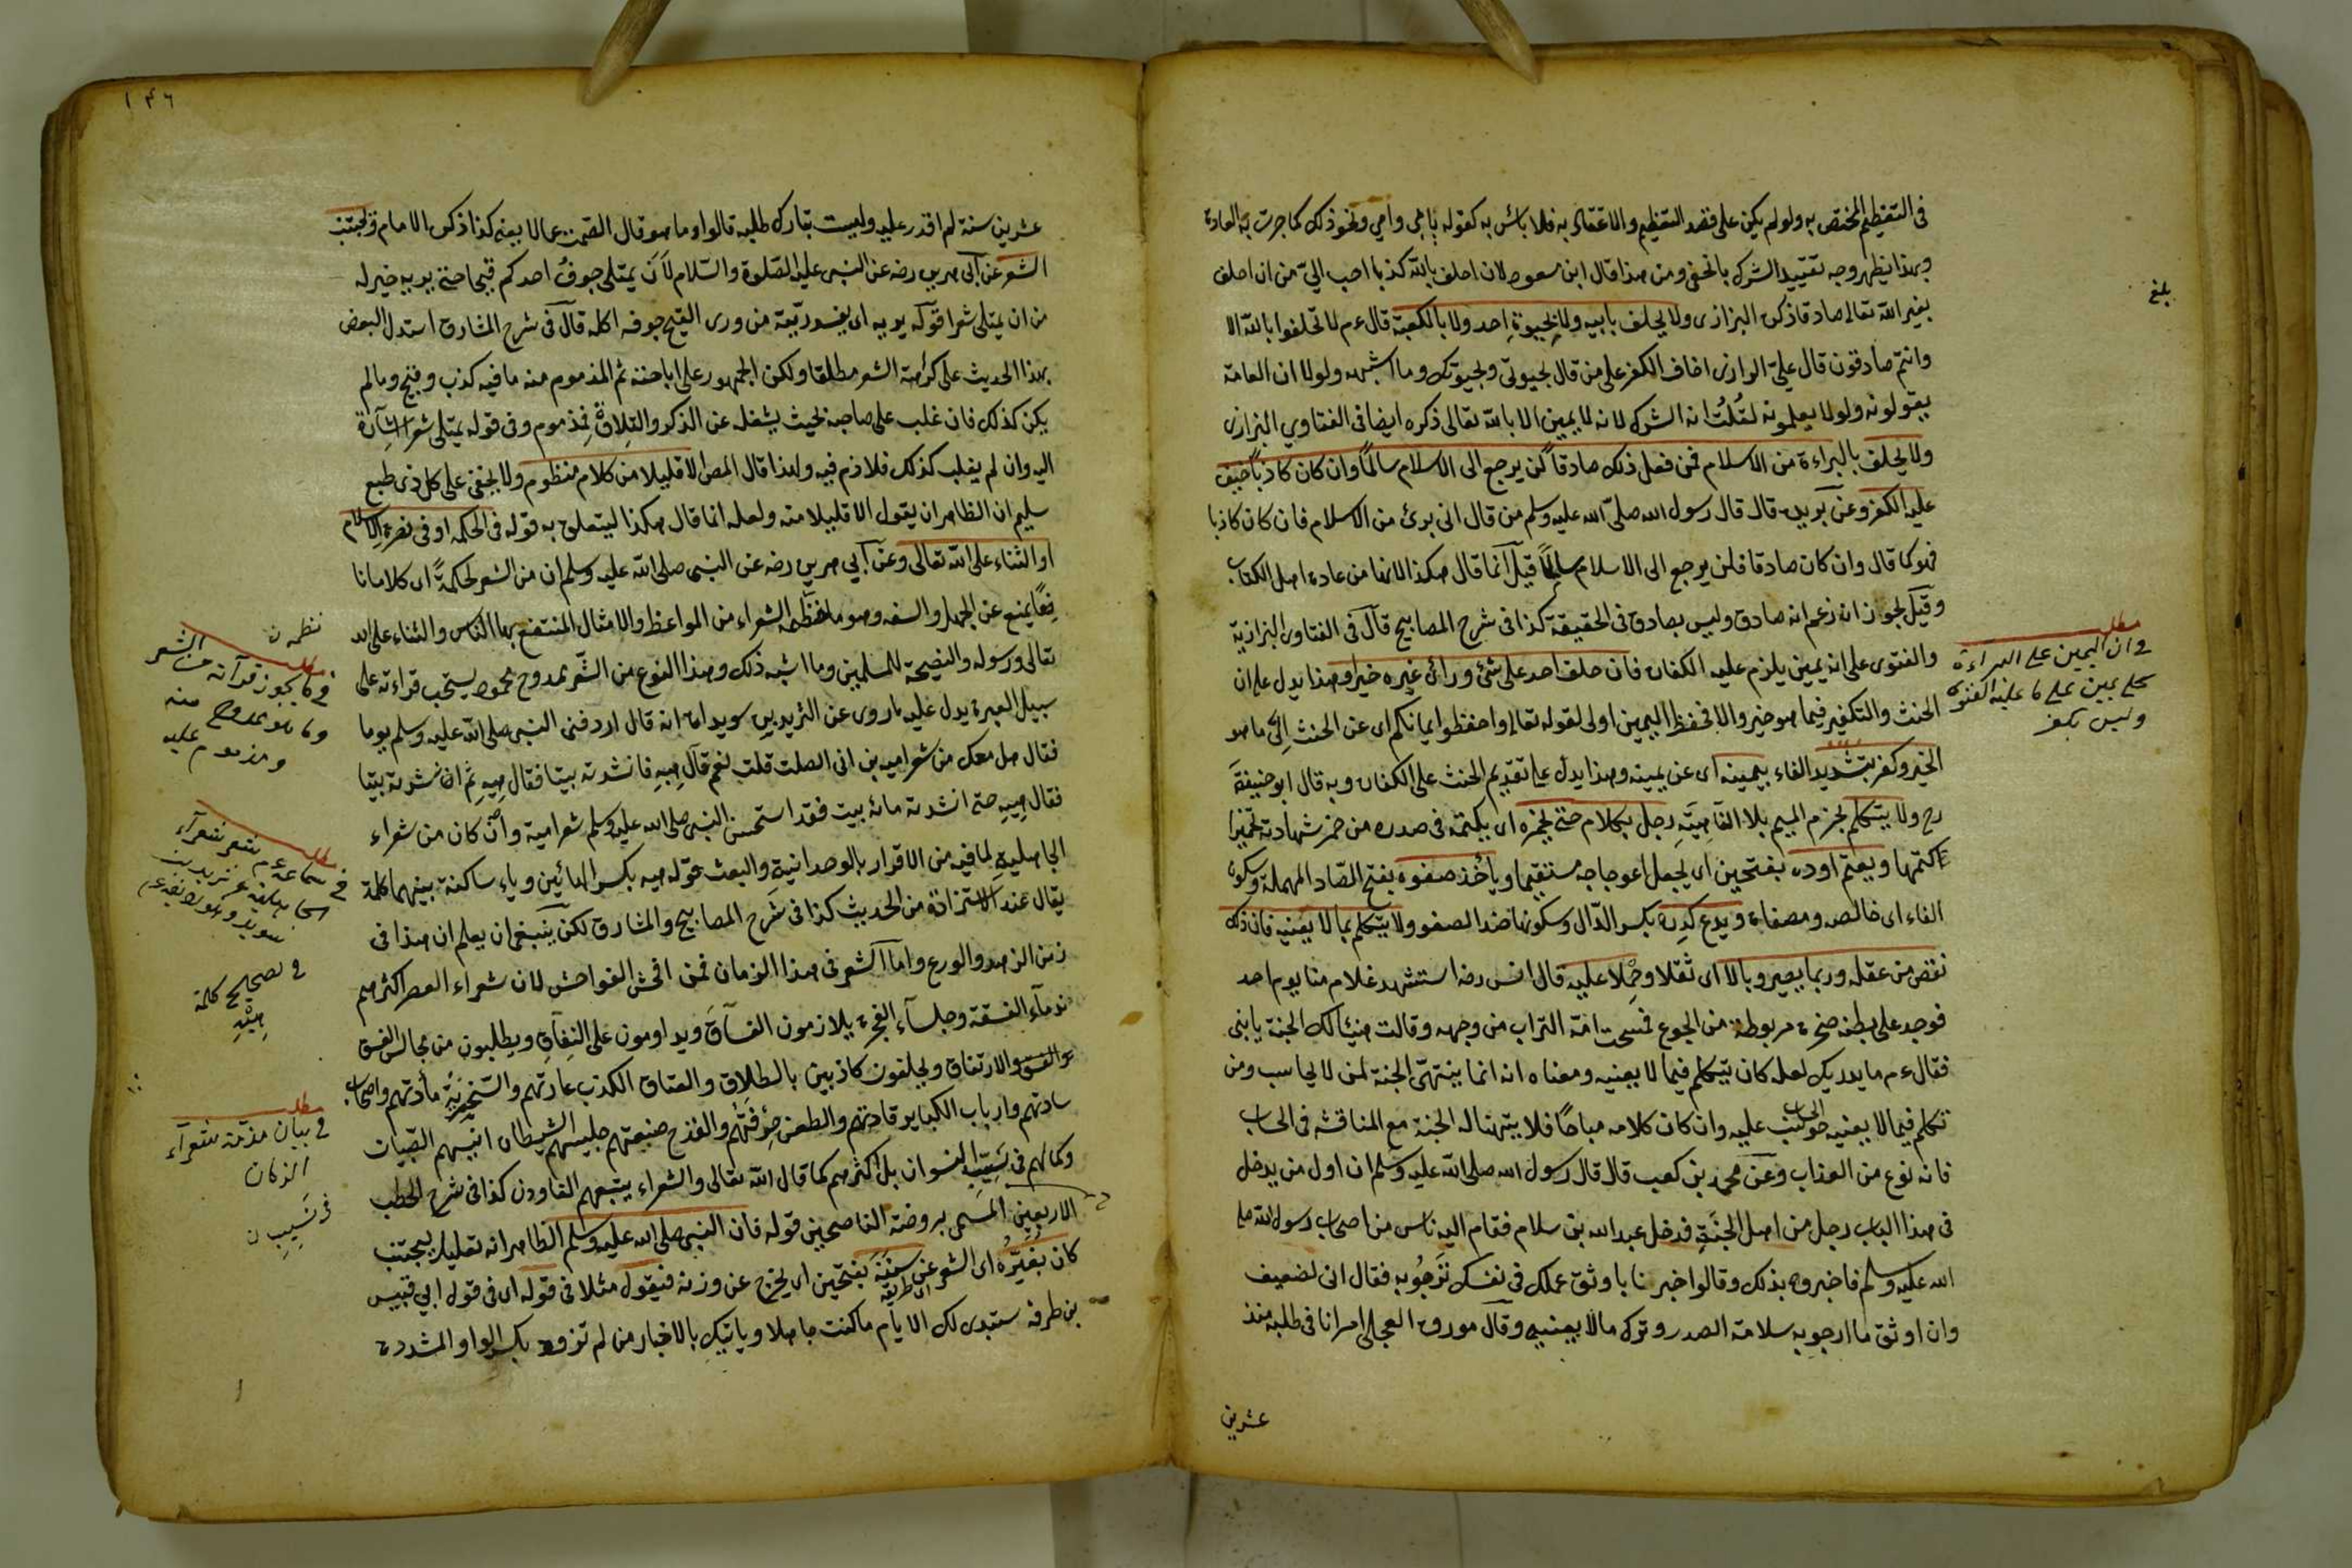 في التعظيم المختص به ولو لم يكن على قصد التعظيم والاعتقاد به فلا بأس به كقوله بابي وامي ونحو ذلك كما جرت به العادة
وبهذا يظهر وجه تقييد الشرك بالخفي ومن هذا قال ابن مسعود لان احلف بالله كذبا احب الي من ان احلف
بغير الله تعالى صادقا ذكره البزازي ولا يحلف بابيه ولا بحيوة احد ولا بالكعبة قال عم لا تحلفوا بالله الا
وانتم صادقون قال علي الرازي اخاف الكفر على من قال بحيوتي وبحيوتك وما اشبهه ولولا ان العامة
يقولونه ولا يعلمونه لقلت انه الشرك لانه لا يمين الا بالله تعالى ذكره ايضا في الفتاوي البزازي
ولا يحلف بالبراءة من الاسلام فمن فعل ذلك صادقا لن يرجع الى الاسلام سالما وان كان كاذبا خيف
عليه الكفر وعن بريدة قال قال رسول الله صلى الله عليه وسلم من قال اني برئ من الاسلام فان كان كاذبا
فهو كما قال وان كان صادقا فلن يرجع الى الاسلام سالما قيل انما قال هكذا لانها من عادة اهل الكتاب
وقيل لجواز انه زعم انه صادق وليس بصادق في الحقيقة كذا في شرح المصابيح قال في الفتاوى البزازية
والفتوى على انه يمين يلزم عليه الكفارة فان حلف احد على شئ ورأى غيره خيرا وهذا يدل على ان
الحنث والتكفير فيما هو خير والا فحفظ اليمين اولى لقوله تعالى واحفظوا ايمانكم اى عن الحنث الى ما هو
الخير وكفر بتشديد الفاء يمينه اى عن يمينه وهذا يدل على تقديم الحنث على الكفارة وبه قال ابو حنيفة
رح ولا يتكلم بجزم الميم بلا الفا رجل بكلام حتى يخمره اى يكتمه في صدره من خمر شهادته تخميرا
كتمها ويقيم اوده بفتحين اى يجعل اعوجاجه مستقيما وياخذ صفوه بفتح الصاد المهملة وسكون
الفاء اى خالصه ومصفاه ويدع كدره بكسر الدال وسكونها ضد الصفو ولا يتكلم بما لا يعنيه فان ذلك
نقص من عقله وربما يصير وبالا اى ثقلا وحملا عليه قال انس رضه استشهد غلام منا يوم احد
فوجد على بطنه صخرة مربوطة من الجوع فمسحت امه التراب من وجهه وقالت هنيئا لك الجنة يا بني
فقال عم ما يدريك لعله كان يتكلم فيما لا يعنيه ومعناه انه انما يتهنى الجنة لمن لا يحاسب ومن
تكلم فيما لا يعنيه حوسب عليه وان كان كلامه مباحا فلا يتهنا له الجنة مع المناقشة في الحساب
فانه نوع من العذاب وعن محمد بن كعب قال قال رسول الله صلى الله عليه وسلم ان اول من يدخل
في هذا الباب رجل من اهل الجنة فدخل عبد الله بن سلام فقام اليه ناس من اصحاب رسول الله صلى
الله عليه وسلم فاخبروه بذلك وقالوا خبرنا باوثق عملك في نفسك ترجو به فقال اني لضعيف
وان اوثق ما ارجو به سلامة الصدر وترك ما لا يعنيه وقال مورق العجلي امر انا في طلبه منذ
عشرين
بلغ
مطلب
في ان اليمين على البراءة
يمين على ما عليه الفتوى
وليس بكفر
١٤٦
عشرين سنة لم اقدر عليه ولست بتارك طلبه قالوا وما هو قال الصمت عما لا يعنيه كذا ذكره الامام ويجتنب
الشعر عن ابي هريرة رضه عن النبي عليه الصلوة والسلام لان يمتلى جوف احدكم قيحا حتى يريه خير له
من ان يمتلى شعرا قوله يريه اى يفسد ريته من ورى القيح جوفه اكله قال في شرح المشارق استدل البعض
بهذا الحديث على كراهة الشعر مطلقا ولكن الجمهور على اباحته ثم المذموم منه ما فيه كذب وقبح وما لم
يكن كذلك فان غلب على صاحبه بحيث يشغله عن الذكر والتلاوة فمذموم وفي قوله يمتلى شعرا اشارة
اليه وان لم يغلب كذلك فلا ذم فيه ولهذا قال المص الا قليلا من كلام منظوم ولا يخفى على كل ذي طبع
سليم ان الظاهر ان يقول الا قليلا منه ولعله انما قال هكذا ليتعلق به قوله في الحكمة او في نصرة الاسلام
او الثناء على الله تعالى وعن ابي هريرة رضه عن النبي صلى الله عليه وسلم ان من الشعر لحكمة اى كلاما نا
فعا يمنع عن الجهل والسفه وهو ما نظمه الشعراء من المواعظ والامثال المنتفع بها الناس والثناء على الله
تعالى ورسوله والنصيحة للمسلمين وما اشبه ذلك وهذا النوع من الشعر ممدوح محمود يستحب قراءته على
سبيل العبرة يدل عليه ما روى عن الشريد بن سويد انه قال اردفني النبي صلى الله عليه وسلم يوما
فقال هل معك من شعر امية بن ابي الصلت قلت نعم قال هيه فانشدته بيتا فقال هيه ثم انشدته بيتا
فقال هيه حتى انشدته مائة بيت فقد استحسن النبي صلى الله عليه وسلم شعر امية وان كان من شعراء
الجاهلية لما فيه من الاقرار بالوحدانية والبعث قوله هيه بكسر الهائين وياء ساكنة بينهما كلمة
يقال عند الاستزادة من الحديث كذا في شرح المصابيح والمشارق لكن ينبغي ان يعلم ان هذا في
زمن الزهد والورع واما الشعر في هذا الزمان فمن افحش الفواحش لان شعراء العصر اكثرهم
ندماء الفسقة وجلساء الفجرة يلازمون الفساق ويداومون على النفاق ويطلبون من مجالس الفسق
والفسق والارتفاق ويحلفون كاذبين بالطلاق والعتاق الكذب عادتهم والسخرية مادتهم واصحاب
سادتهم وارباب الكبائر قادتهم والطعن حرفتهم والقذح صنيعتهم جليسهم الشيطان انيسهم الصبيان
وكمالهم في نسيب النسوان بل اكثرهم كما قال الله تعالى والشعراء يتبعهم الغاون كذا في شرح الخطب
الاربعين المسمى بروضة الناصحين قوله فان النبي صلى الله عليه وسلم الظاهر انه تعليل ليجتنب
كان يغيره اى الشعر عن سننه بفتحين اى طريقه اى يخرج عن وزنه فيقول مثلا في قوله اى في قول ابي قبيس
بن طرفه ستبدى لك الايام ما كنت جاهلا وياتيك بالاخبار من لم تزود بكسر الواو المشددة
نظمه ن
مطلب
فيما يجوز قرآنه من الشعر
وما هو ممدوح منه
ومذموم عليه
مطلب
في سماعه عم شعر شعراء
الجاهلية عن شريد بن
سويد
في تصحيح كلمة
هيه
مطلب
في بيان مذمة شعراء
الزمان
في نسيب ن